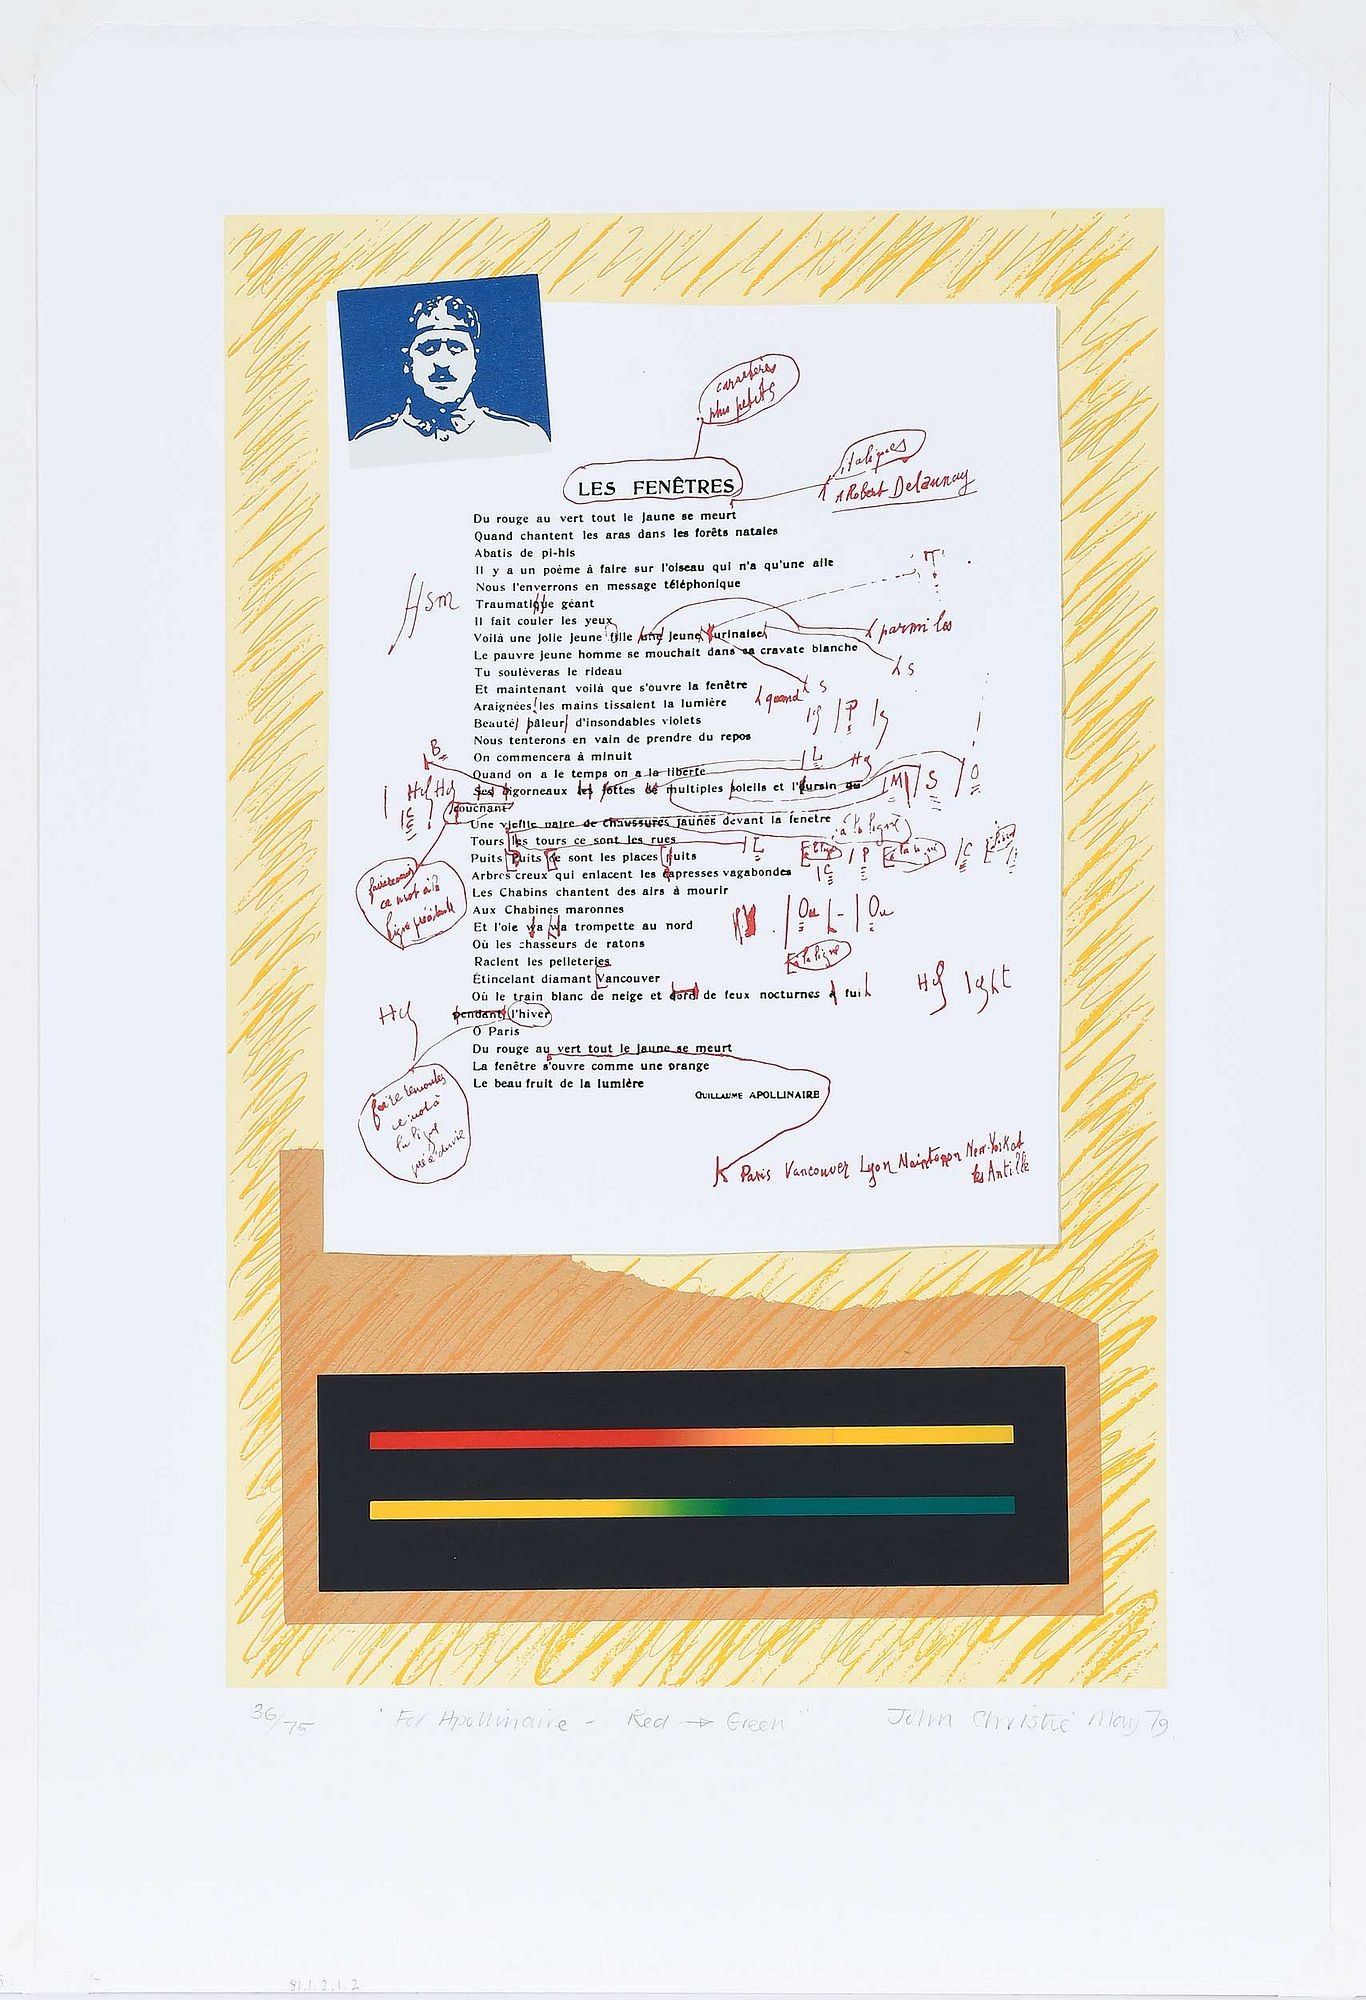 caractères
plus petits
LES FENÊTRES
italiques
à Robert Delaunay
Du rouge au vert tout le jaune se meurt
Quand chantent les aras dans les forêts natales
Abatis de pi-his
Il y a un poème à faire sur l'oiseau qui n'a qu'une aile
Nous l'enverrons en message téléphonique
Traumatique géant
Il fait couler les yeux
Voilà une jolie jeune fille une jeune turinaise
parmi les
Le pauvre jeune homme se mouchait dans sa cravate blanche
s
Tu soulèveras le rideau
Et maintenant voilà que s'ouvre la fenêtre
quand s
Araignées les mains tissaient la lumière
Beauté pâleur d'insondables violets
P
Nous tenterons en vain de prendre du repos
On commencera à minuit
L
Quand on a le temps on a la liberté
B
Ses bigorneaux les lottes de multiples soleils et l'oursin du
M S O
couchant
Une vieille paire de chaussures jaunes devant la fenêtre
à la ligne
Tours les tours ce sont les rues
L
Puits Puits ce sont les places puits
P à la ligne C
Arbres creux qui enlacent les capresses vagabondes
C
faire remonter
ce mot à la
ligne précédente
Les Chabins chantent des airs à mourir
Aux Chabines maronnes
Et l'oie wa wa trompette au nord
Ou - Ou
Où les chasseurs de ratons
Raclent les pelleteries
à la ligne
Étincelant diamant Vancouver
Où le train blanc de neige et dord de feux nocturnes a fui
pendant l'hiver
O Paris
Du rouge au vert tout le jaune se meurt
La fenêtre s'ouvre comme une orange
Le beau fruit de la lumière
GUILLAUME APOLLINAIRE
faire remonter
ce mot à
la ligne
Paris Vancouver Lyon Maintenon New-York et
les Antilles
36/75 "For Apollinaire - Red → Green" John Christie May 79
81.1.2.1.2